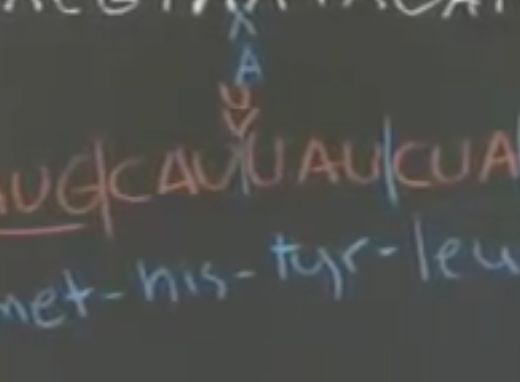 X
A
U
AUG|CAU|UAU|CUA
met-his-tyr-leu